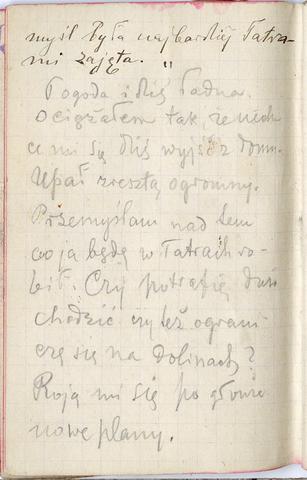 myśl była najbardziej Tatra-
mi zajęta. "
Pogoda i dziś ładna.
Ociężałem tak, że niech
ce mi się dziś wyjść z domu.
Upał zresztą ogromny.
Przemyślam nad tem
co ja będę w Tatrach ro-
bił. Czy potrafię dużo
chodzić czy też ograni-
czę się na dolinach?
Roją mi się po głowie
nowe plany.